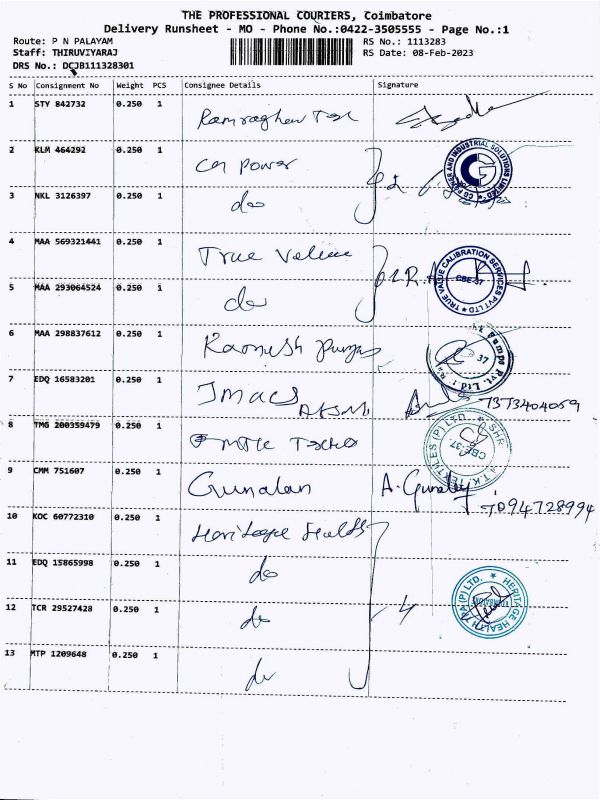 THE PROFESSIONAL COURIERS, Coimbatore
Delivery Runsheet - MO - Phone No.:0422-3505555 - Page No.:1
Route: P N PALAYAM RS No.: 1113283
Staff: THIRUVIYARAJ RS Date: 08-Feb-2023
DRS No.: DCJB111328301
S No Consignment No Weight PCS Consignee Details Signature
1 STY 842732 0.250 1 Ramraghav Tex
2 KLM 464292 0.250 1 CG Power
CG POWER AND INDUSTRIAL SOLUTIONS LIMITED
3 NKL 3126397 0.250 1 do
4 MAA 569321441 0.250 1 True Value
TRUE VALUE CALIBRATION SERVICES PVT LTD
CBE-37
5 MAA 293064524 0.250 1 do
6 MAA 298837612 0.250 1 Ramesh Pumps
Pumps Pvt. Ltd
37
7 EDQ 16583201 0.250 1 Imacs 7373404059
8 TMG 200359479 0.250 1
TEXTILES (P) LTD.
CBE-37.
9 CMM 751607 0.250 1 Gunalan A. Gunalan
7094728994
10 KOC 60772310 0.250 1 Heritage Health
11 EDQ 15865998 0.250 1 do
HERITAGE HEALTH (P) LTD.
12 TCR 29527428 0.250 1 do
13 MTP 1209648 0.250 1 do